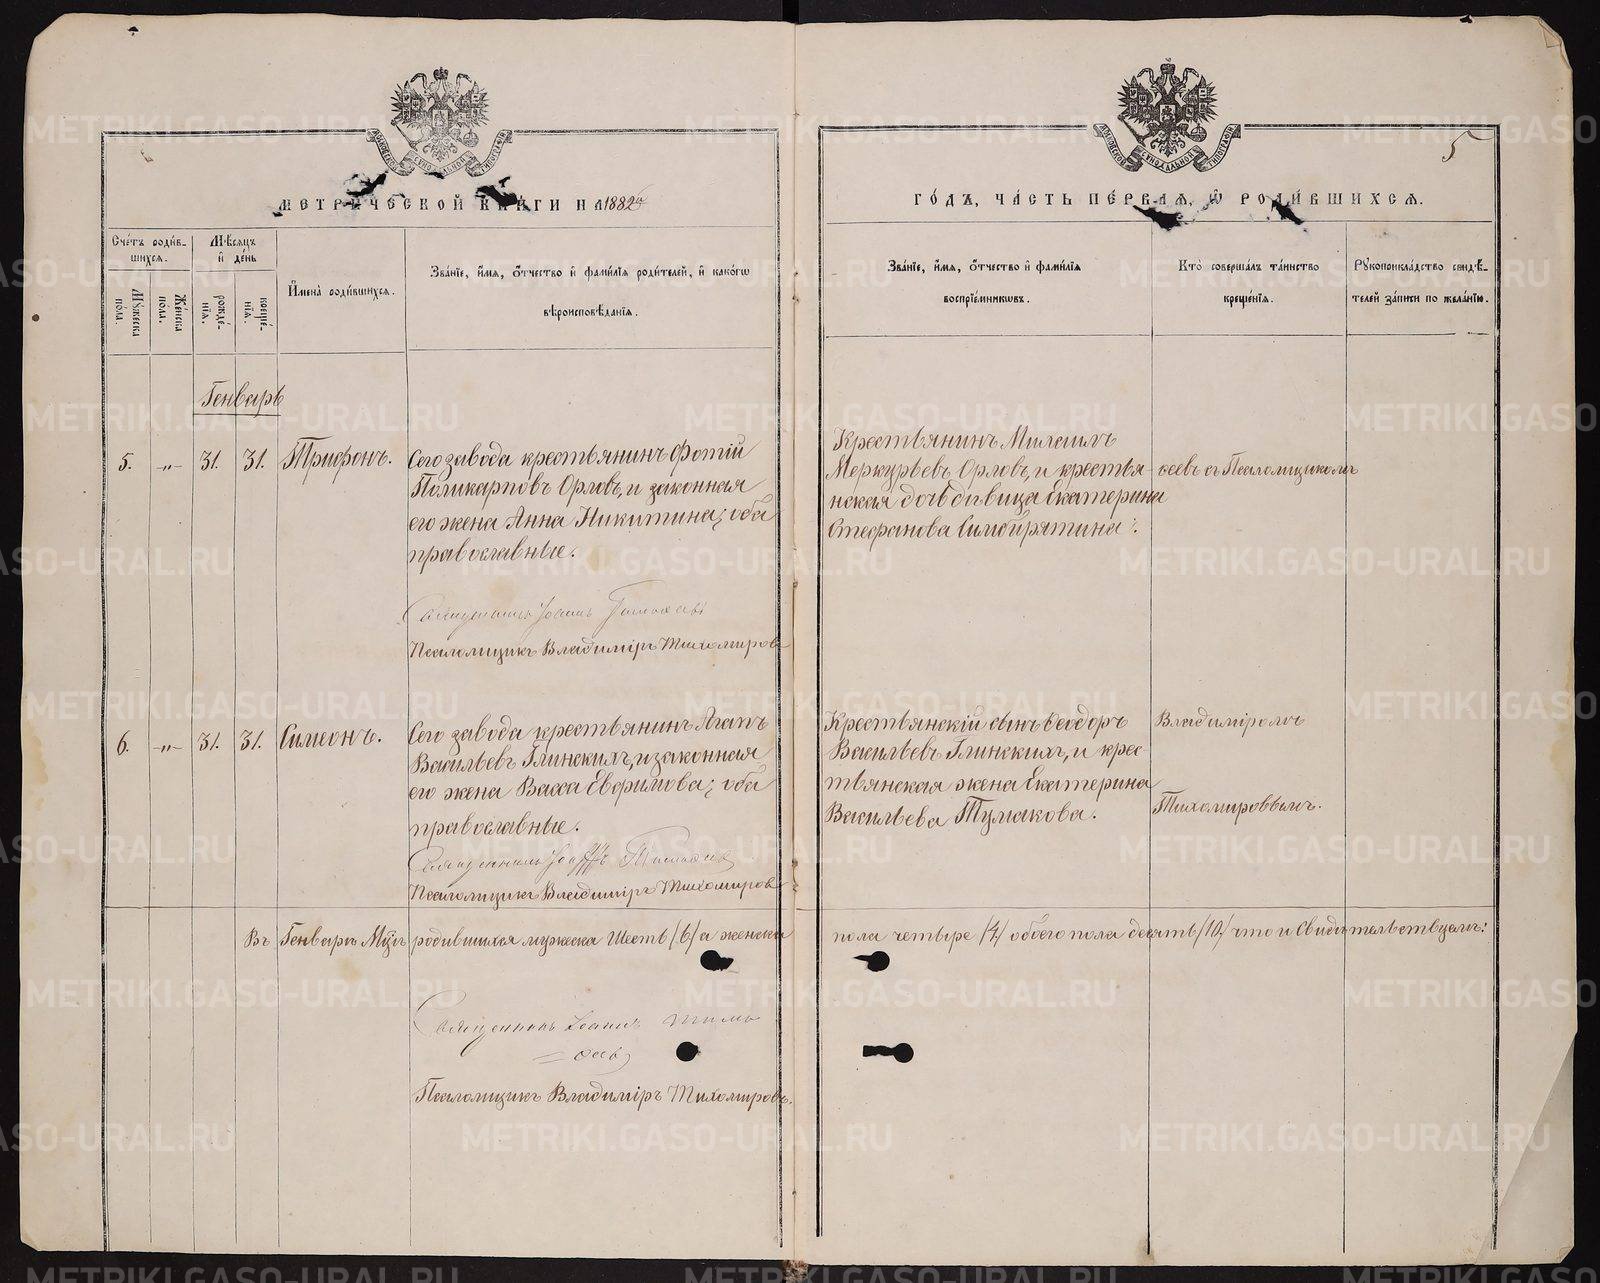 МОСКОВСКОЙ СѴНОДАЛЬНОЙ ТИПОГРАФІИ
МЕТРИЧЕСКОЙ КНИГИ НА 1882й
Счетъ родив-
шихся.
Мѣсяцъ
и день
Мужеска
пола.
Женска
пола.
рожде-
нія.
креще-
нія.
Имена родившихся.
Званіе, имя, отчество и фамилія родителей, и какогѡ
вѣроисповѣданія.
Генварь
5. -„- 31. 31. Трифонъ.
Сего завода крестьянинъ Фотій
Поликарповъ Орловъ, и законная
его жена Анна Никитина; оба
православные.
Священникъ Іоаннъ
Псаломщикъ Владиміръ Тихомировъ
6. -„- 31. 31. Симеонъ.
Сего завода крестьянинъ Агапъ
Васильевъ Глинскихъ, и законная
его жена Васса Евфимова; оба
православные.
Священникъ
Псаломщикъ Владиміръ Тихомировъ
Въ Генварѣ Мцѣ родившихся мужеска Шесть /6/ а женска
Священникъ Іоаннъ
Псаломщикъ Владиміръ Тихомировъ.
МОСКОВСКОЙ СѴНОДАЛЬНОЙ ТИПОГРАФІИ
5
ГОДЪ, ЧАСТЬ ПЕРВАЯ, Ѡ РОДИВШИХСЯ.
Званіе, имя, отчество и фамилія
воспріемникѡвъ.
Кто совершалъ таинство
крещенія.
Рукоприкладство свидѣ-
телей записи по желанію.
Крестьянинъ
Меркурьевъ Орловъ, и крестья-
нская дочь дѣвица Екатерина
Стефанова
сеевъ съ Псаломщикомъ
Крестьянскій сынъ Ѳеодоръ
Васильевъ Глинскихъ, и крес-
тьянская жена Екатерина
Васильева Тумакова.
Владиміромъ
Тихомировымъ.
пола четыре /4/ обоего пола десять /10/ что и Свидѣтельствуемъ:
METRIKI.GASO-URAL.RU